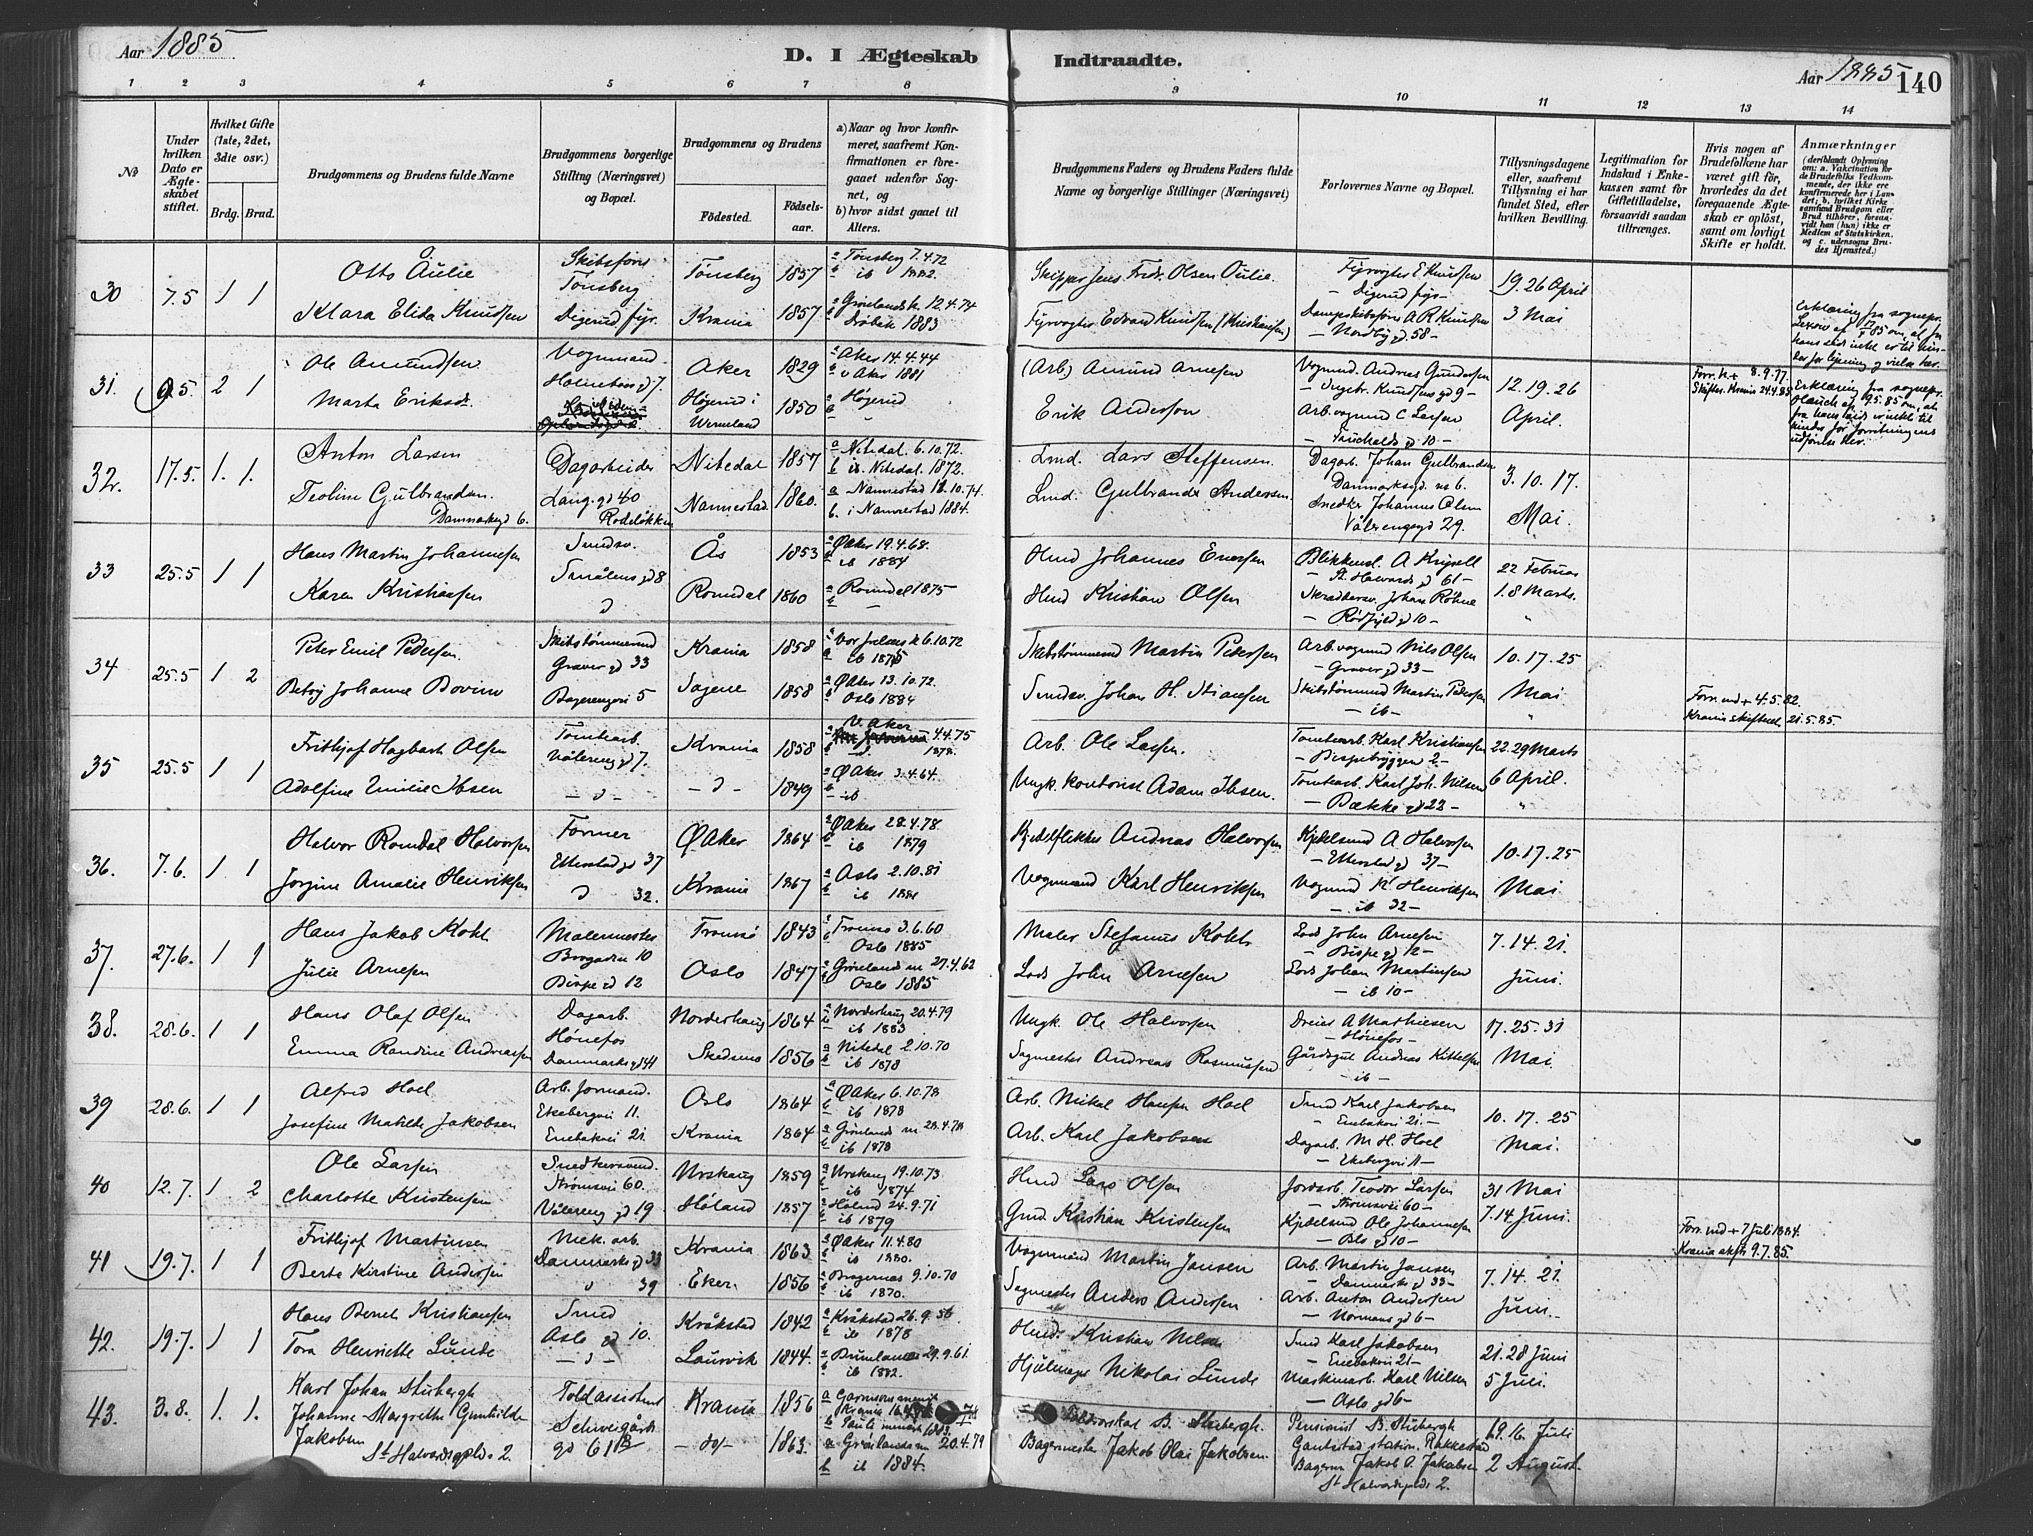 Aar 1885
D. I Ægteskab Indtraadte.
Aar 1885 140
1 2 3 4 5 6 7 8 9 10 11 12 13 14
No
Under hvilken Dato er Ægteskabet stiftet.
Hvilket Gifte (1ste, 2det, 3die osv.)
Brdg. Brud.
Brudgommens og Brudens fulde Navne
Brudgommens borgerlige Stilling (Næringsvei) og Bopæl.
Brudgommens og Brudens
Födested. Födselsaar.
a) Naar og hvor konfirmeret, saafremt Konfirmationen er foregaaet udenfor Sognet, og
b) hvor sidst gaaet til Alters.
Brudgommens Faders og Brudens Faders fulde Navne og borgerlige Stillinger (Næringsvei)
Forlovernes Navne og Bopæl.
Tillysningsdagene eller, saafremt Tillysning ei har fundet Sted, efter hvilken Bevilling.
Legitimation for Indskud i Enkekassen samt for Giftetilladelse, forsaavidt saadan tiltrænges.
Hvis nogen af Brudefolkene har været gift før, hvorledes da det foregaaende Ægteskab er oplöst, samt om lovligt Skifte er holdt.
Anmærkninger
(deriblandt Oplysning om: a. Vakcination for de Brudefolks Vedkommende, der ikke ere konfirmerede her i Landet; b. hvilket Kirkesamfund Brudgom eller Brud tilhörer, forsaavidt han (hun) ikke er Medlem af Statskirken, og c. udensogns Brudes Hjemsted.)
30 7.5 1 1 Otto Åulie Tönsberg Tönsberg 1857 a Tönsberg 7.4.72 b ib 1882. Skipper Jens Fredr. Olsen Oulie. Fyrvogter E Knudsen - Digerud fyr - 19. 26 April
Klara Elida Knudsen Digerud fyr. Krania 1857 a Grönlands k. 12.4.74 Dröbak 1883 Fyrvogter Edvard Knudsen (Kristiansen) A R Knudsen 3 Mai
31. 9.5 2 1 Ole Amundsen Vognmand. Aker 1829 a Aker 14.4.44 b v Aker 1881 (Arb) Amund Arnesen Vogmd. Andreas Gundersen 12. 19. 26 Forr. h + 8.9.77
Marta Eriksdr. Högerud i Wermland 1850 Högerud Erik Anderson Arb. vogmd C Larsen April.
32. 17.5. 1. 1. Anton Larsen Dagarbeider Nitedal 1857 a Nitedal 6.10.72. b ib. Nitedal. 1872. Lmd. Lars Steffensen. Dagarb. Johan Gulbrandsen Danmarksgd. no 6. 3. 10. 17.
Teoline Gulbrandsen. Danmarksgd 6. Lang. gd 40 Rodelökken Nannestad. 1860. a Nannestad 11.10.74. b. i Nannestad 1884. Lmd. Gulbrand Andersen. Snedker Johannes Olsen Vålerengsgd 29. Mai.
33 25.5 1 1 Hans Martin Johannesen Smålens gd 8 Ås 1853 a ØAker 19.4.68. b ib 1884 Hmd Johannes Enersen - St. Halvards gd 61 - 22 Februar
Karen Kristiansen Romedal 1860 a Romedal 1875 Hmd Kristian Olsen Johan Röhne - Rödfyld gd 10 - 1. 8 Marts.
34 25.5 1 2 Peter Emil Pedersen. Skibstömmermd Graver gd 33 Krania 1858 a Vor frelsers k 6.10.72 b ib 1875 Skibstömmermd Martin Pedersen Arb. vogmd Nils Olsen - Graver gd 33 - 10. 17. 25
Betsy Johanne Bovine Bogerengvei 5 Sagene 1858 a ØAker 13.10.72. b Oslo 1884 Smedsv. Johan H. Stiansen Skibstömmermd Martin Pedersen - ib - Mai Forr. md + 4.5.82. Krania skifteret 21.5.85.
35 25.5 1 1 Frithjof Hagbarth Olsen Tomtearb. Vålereng gd 7. Krania 1858 V. Aker 4.4.75 1878. Arb. Ole Larsen. Tomtearb. Karl Kristiansen - Bispebryggen 2 - 22. 29 Marts
Adolfine Emilie Ibsen - d - - d - 1849 a ØAker 3.4.64. b - ib Ungk. kontorist Adam Ibsen. Tomtearb. Karl Joh. Nilsen - Bække gd 22 - 6 April.
36. 7.6. 1. 1 Halvor Romdal Halvorsen Former Etterstad gd 37 ØAker 1864 a ØAker 28.4.78. b ib 1879 Kjedelflikker Andreas Halvorsen Kjedelsmd A Halvorsen - Etterstad gd 37 - 10. 17. 25
Jorgine Amalie Henriksen d 32. Krania 1867 a Oslo 2.10.81 b ib 1881 Vognmand Karl Henriksen Vogmd Kl Henriksen - ib 32 - Mai
37. 27.6. 1 1 Hans Jakob Koht Malermester Brogaden 10 Tromsö 1843 a Tromsö 3.6.60 b Oslo 1885 Maler Stefanus Koht Lods John Arnesen - Bispe gd 12 - 7. 14. 21.
Julie Arnesen Bispe gd 12 Oslo 1847 a Grönland m 27.4.62 b Oslo 1885 Lods John Arnesen Lods Johan Martinsen - ib 10 - Juni.
38. 28.6. 1 1 Hans Olaf Olsen Dagarb. Hönefos Norderhaug 1864 a Norderhaug 20.4.79 b ib 1883 Ungk. Ole Halvorsen Dreier A Mathiesen - Hönefos - 17. 25. 31
Emma Randine Andreassen Danmarks gd 44 Skedsmo 1856 a Nitedal 2.10.70 b ib 1878 Sagmester Andreas Rasmussen Gårdsgut Andreas Kittelsen - ib - Mai
39 28.6. 1 1 Alfred Hoel Arb. formand. Ekebergvei 11. Oslo 1864 a ØAker 6.10.78 b ib 1878 Arb. Mikal Hansen Hoel Smed Karl Jakobsen - Enebakvei 21. - 10. 17. 25
Josefine Matilde Jakobsen Enebakvei 21. Krania 1864 a Grönland m 28.4.78 b ib 1878 Arb. Karl Jakobsen Dagarb. M. H. Hoel - Ekebergvei 11 - Mai.
40 12.7. 1 2 Ole Larsen Snedkersvend. Strömsvei 60. Urskaug 1859 a Urskaug 19.10.73 b ib 1874 Hmd Lars Olsen Jordarb. Teodor Larsen - Strömsvei 60 - 31 Mai
Charlotte Kristensen Vålereng gd 19 Höland 1857 a Höland 24.9.71 b ib 1879 Gmd. Kristian Kristensen Kjedelsmd Ole Johannesen - Oslo gd 10 - 7. 14 Juni. Forr. md + 7 Juli 1884. Krania skftr 9.7.85.
41 19.7. 1 1 Frithjof Martinsen Mek. arb. Danmarks gd 33 Krania 1863. a ØAker 11.4.80 b ib 1880. Vognmand Martin Jansen Arb. Martin Jansen - Danmarks gd 33 - 7. 14. 21.
Berte Kirstine Andersen d 39 Eker 1856 a Bragernæs 9.10.70 b ib 1870. Sagmester Anders Andersen Arb. Anton Andersen - Normans gd 6 - Juni -
42. 19.7. 1 1 Hans Bernt Kristiansen Smed Oslo gd 10. Kråkstad 1842 a Kråkstad 26.9.56 b ib 1878 Hmd. Kristian Nilsen Smed Karl Jakobsen - Enebakvei 21 - 21. 28 Juni
Tora Henriette Lunde - d - Laurvik 1844. a Brunlanes 29.9.61 b ib 1882. Hjulmager Nikolai Lunde Maskinarb. Karl Nilsen - Oslo gd 6 - 5 Juli.
43. 3.8. 1. 1. Karl Johan Stubergh Toldassistent Krania 1856 a Garnisonsmenih. Krania b Pauli menih 1883. B. Stubergh. Pensionist B. Stubergh Gautestad station. Rakkestad 19. 16 Juli
Johanne Margrethe Gunhilde Jakobsen St Halvardsgplds 2. Schweigårds gd 61 B - do - 1863. a Grönlands m 20.4.79 b ib 1884. Bagermester Jakob Olai Jakobsen. Bagerm Jakob O. Jakobsen St Halvardsplds 2. 2 August.